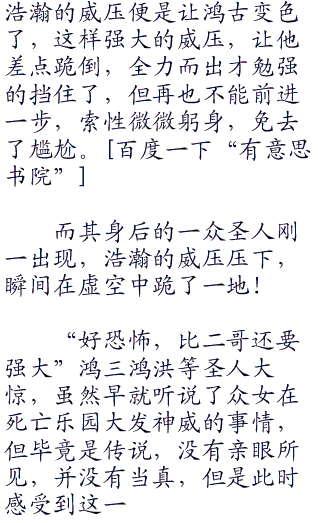 浩瀚的威压便是让鸿古变色
了，这样强大的威压，让他
差点跪倒，全力而出才勉强
的挡住了，但再也不能前进
一步，索性微微躬身，免去
了尴尬。[百度一下“有意思
书院”]
而其身后的一众圣人刚
一出现，浩瀚的威压压下，
瞬间在虚空中跪了一地！
“好恐怖，比二哥还要
强大”鸿三鸿洪等圣人大
惊，虽然早就听说了众女在
死亡乐园大发神威的事情，
但毕竟是传说，没有亲眼所
见，并没有当真，但是此时
感受到这一